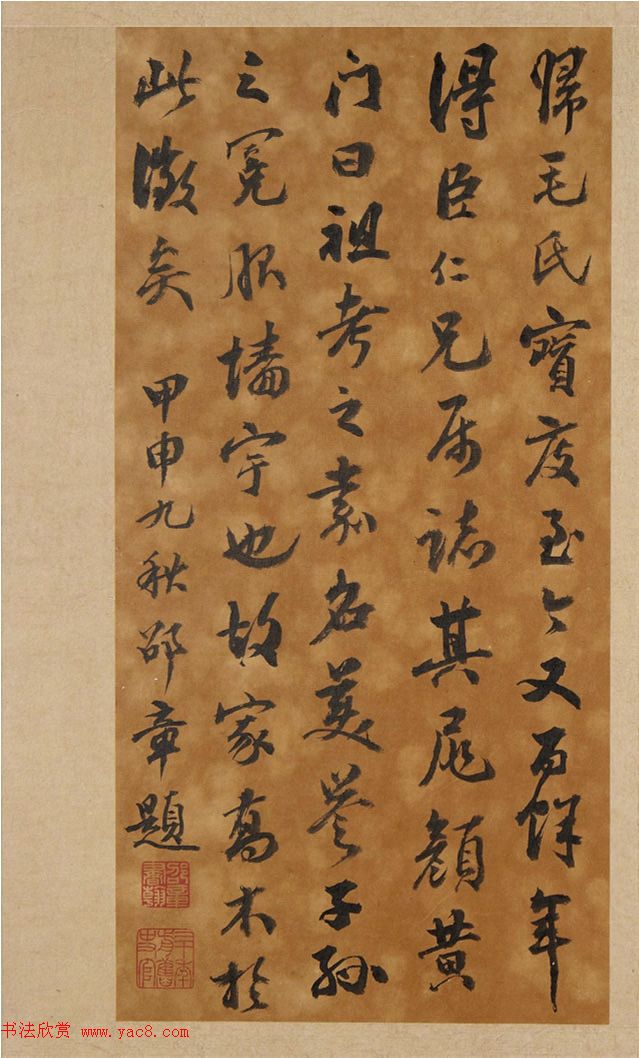 歸毛氏寶庋至今又百餘年
得臣仁兄属誌其尾顔黄
门曰祖考之嘉名美譽子孫
之冕服墻宇也故家喬木於
此徵矣 甲申九秋邵章題
书法欣赏 www.yac8.com